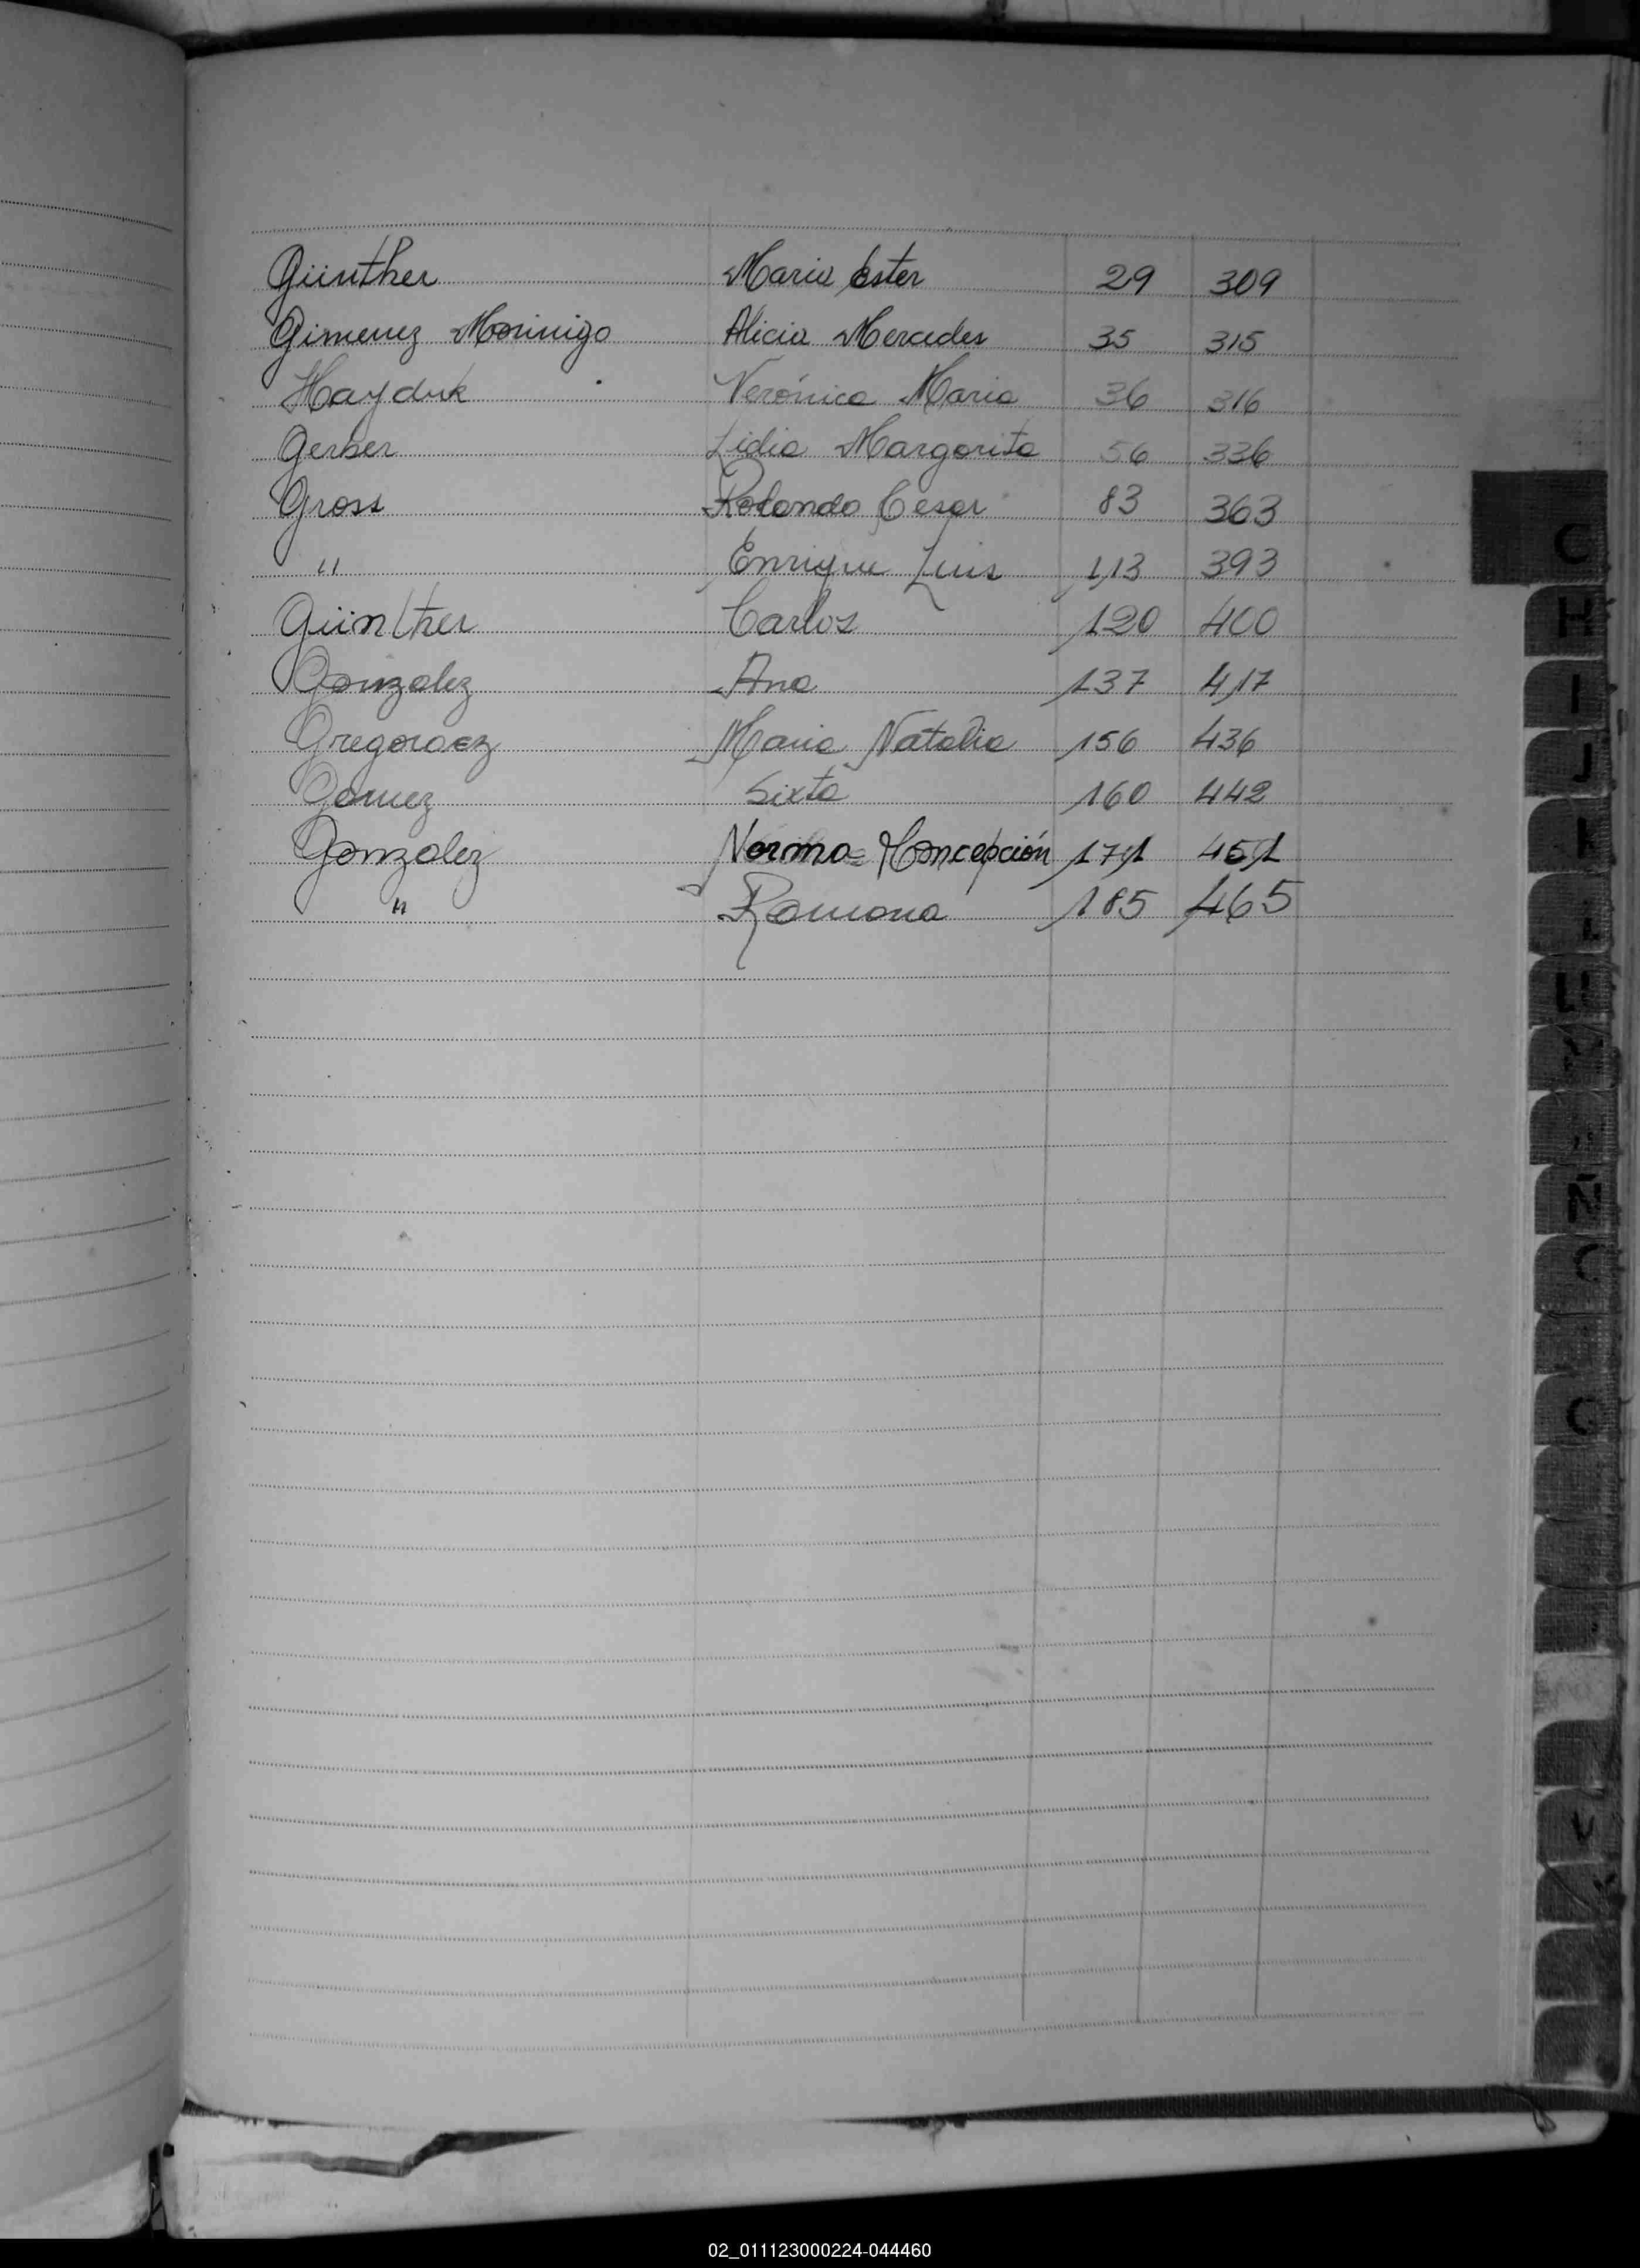 Günther Maria Ester 29 309
Gimenez Morinigo Alicia Mercedes 35 315
Hayduk Verónica Maria 36 316
Gerber Lidia Margarita 56 336
Gross Rolando Cesar 83 363
" Enrique Luis 113 393
Günther Carlos 120 400
Gonzalez Ana 137 417
Gregoraez Maria Natalia 156 436
Gomez Sixta 160 442
Gonzalez Norma Concepción 171 451
" Ramona 185 465
02_011123000224-044460